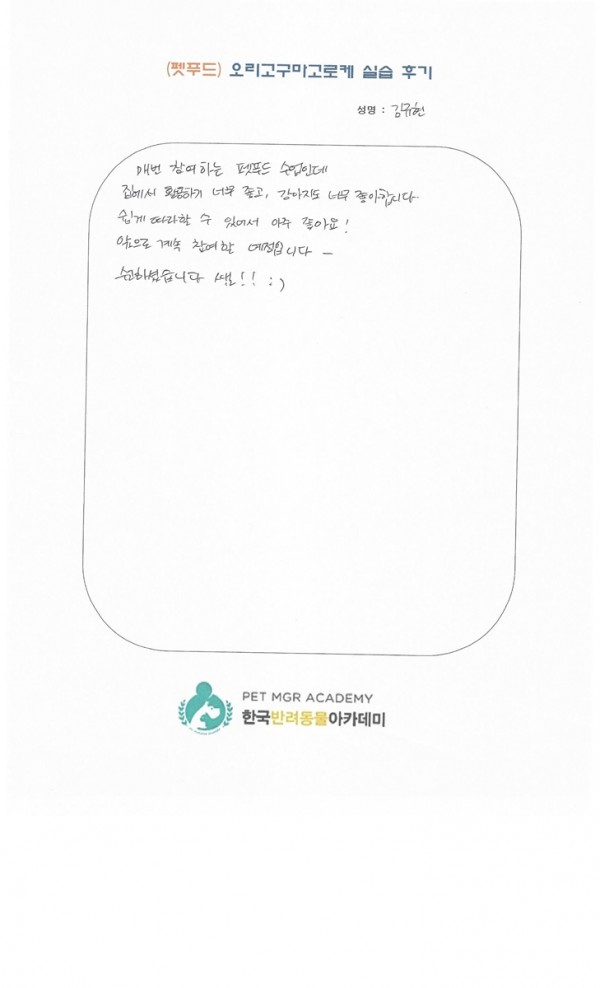 (펫푸드) 오리고구마고로케 실습 후기
성명 : 김규현
매번 참여하는 펫푸드 수업인데
집에서 활용하기 너무 좋고, 강아지도 너무 좋아합니다.
쉽게 따라할 수 있어서 아주 좋아요!
앞으로 계속 참여할 예정입니다 ~
수고하셨습니다 쌤!! :)
PET MGR ACADEMY
한국반려동물아카데미